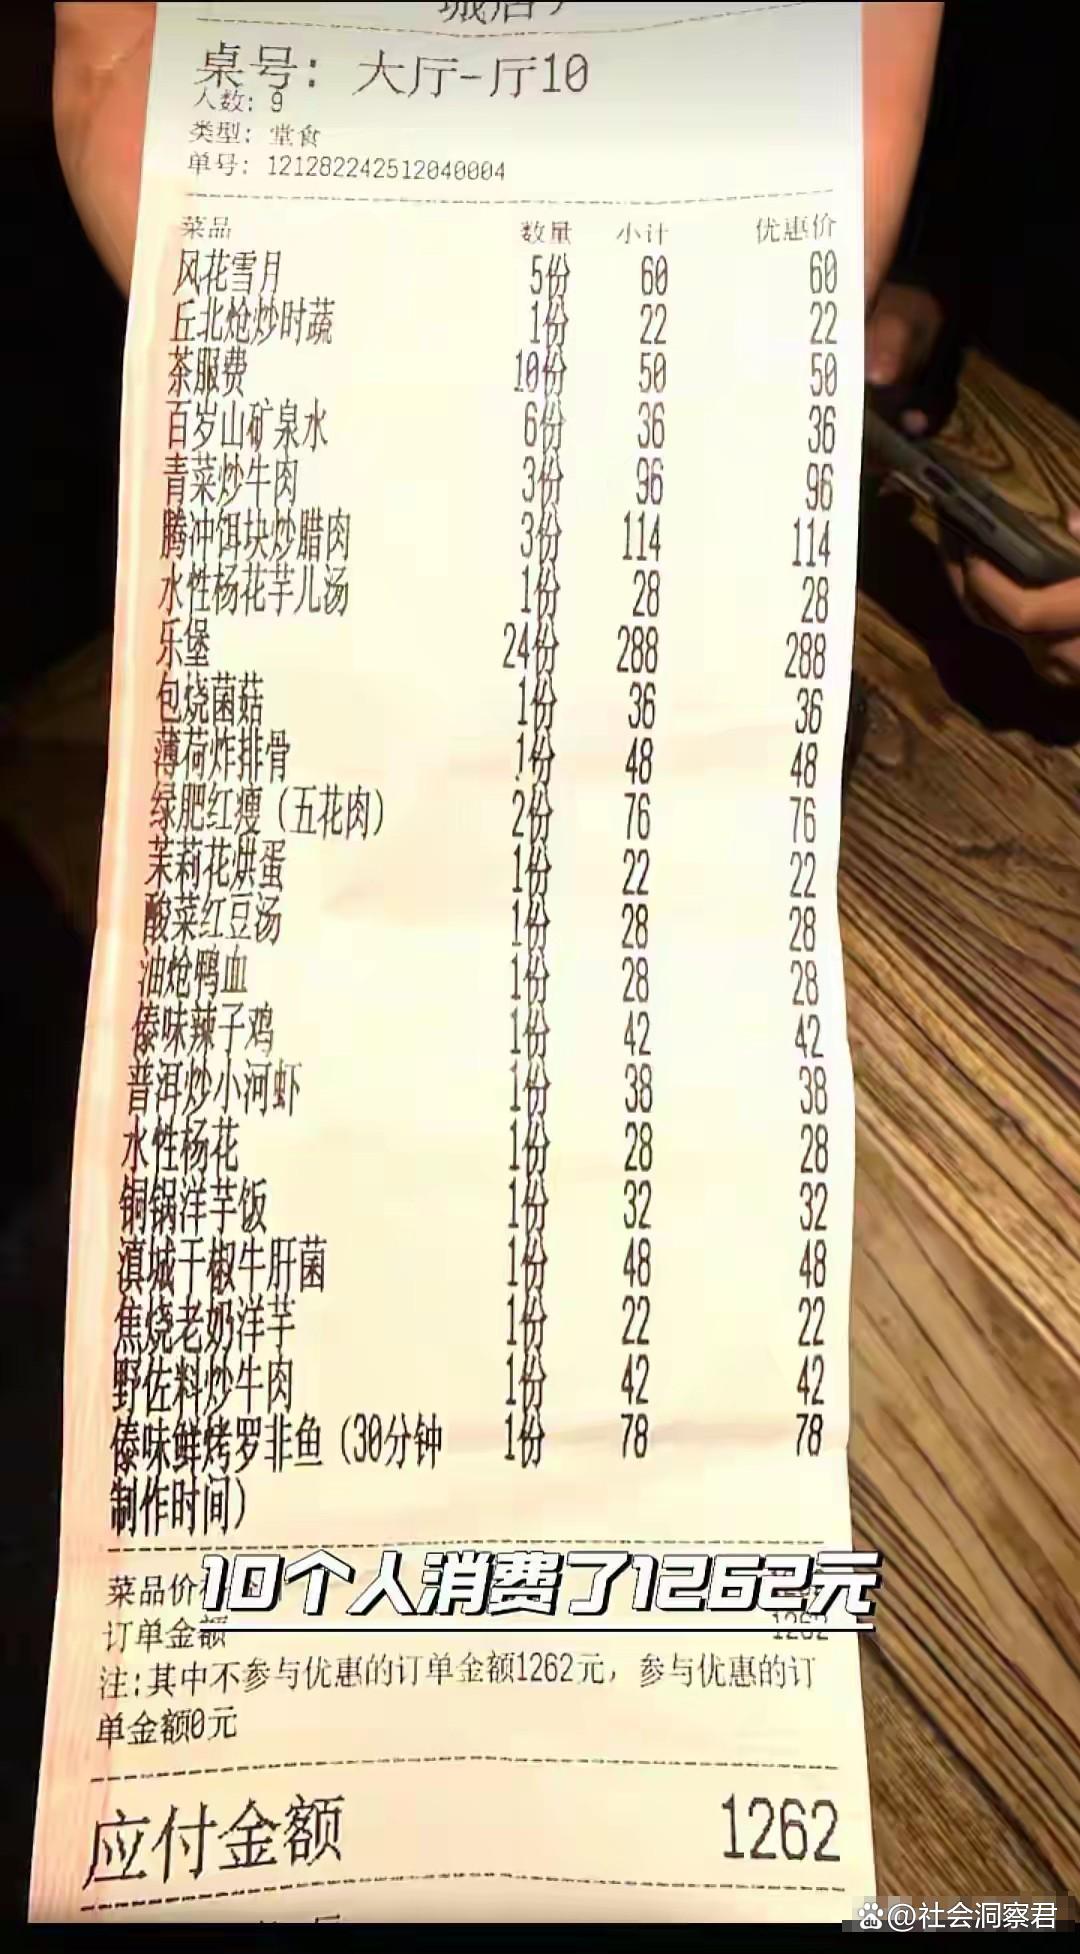 桌号: 大厅-厅10
人数: 9
类型: 堂食
单号: 121282242512040004
菜品 数量 小计 优惠价
风花雪月 5份 60 60
丘北炝炒时蔬 1份 22 22
茶服费 10份 50 50
百岁山矿泉水 6份 36 36
青菜炒牛肉 3份 96 96
腾冲饵块炒腊肉 3份 114 114
水性杨花芋儿汤 1份 28 28
乐堡 24份 288 288
包烧菌菇 1份 36 36
薄荷炸排骨 1份 48 48
绿肥红瘦（五花肉） 2份 76 76
茉莉花烘蛋 1份 22 22
酸菜红豆汤 1份 28 28
油炝鸭血 1份 28 28
傣味辣子鸡 1份 42 42
普洱炒小河虾 1份 38 38
水性杨花 1份 28 28
铜锅洋芋饭 1份 32 32
滇城干椒牛肝菌 1份 48 48
焦烧老奶洋芋 1份 22 22
野佐料炒牛肉 1份 42 42
傣味鲜烤罗非鱼（30分钟 1份 78 78
制作时间）
菜品价
10个人消费了1262元
订单金额 1262
注:其中不参与优惠的订单金额1262元，参与优惠的订
单金额0元
应付金额 1262
@社会洞察君